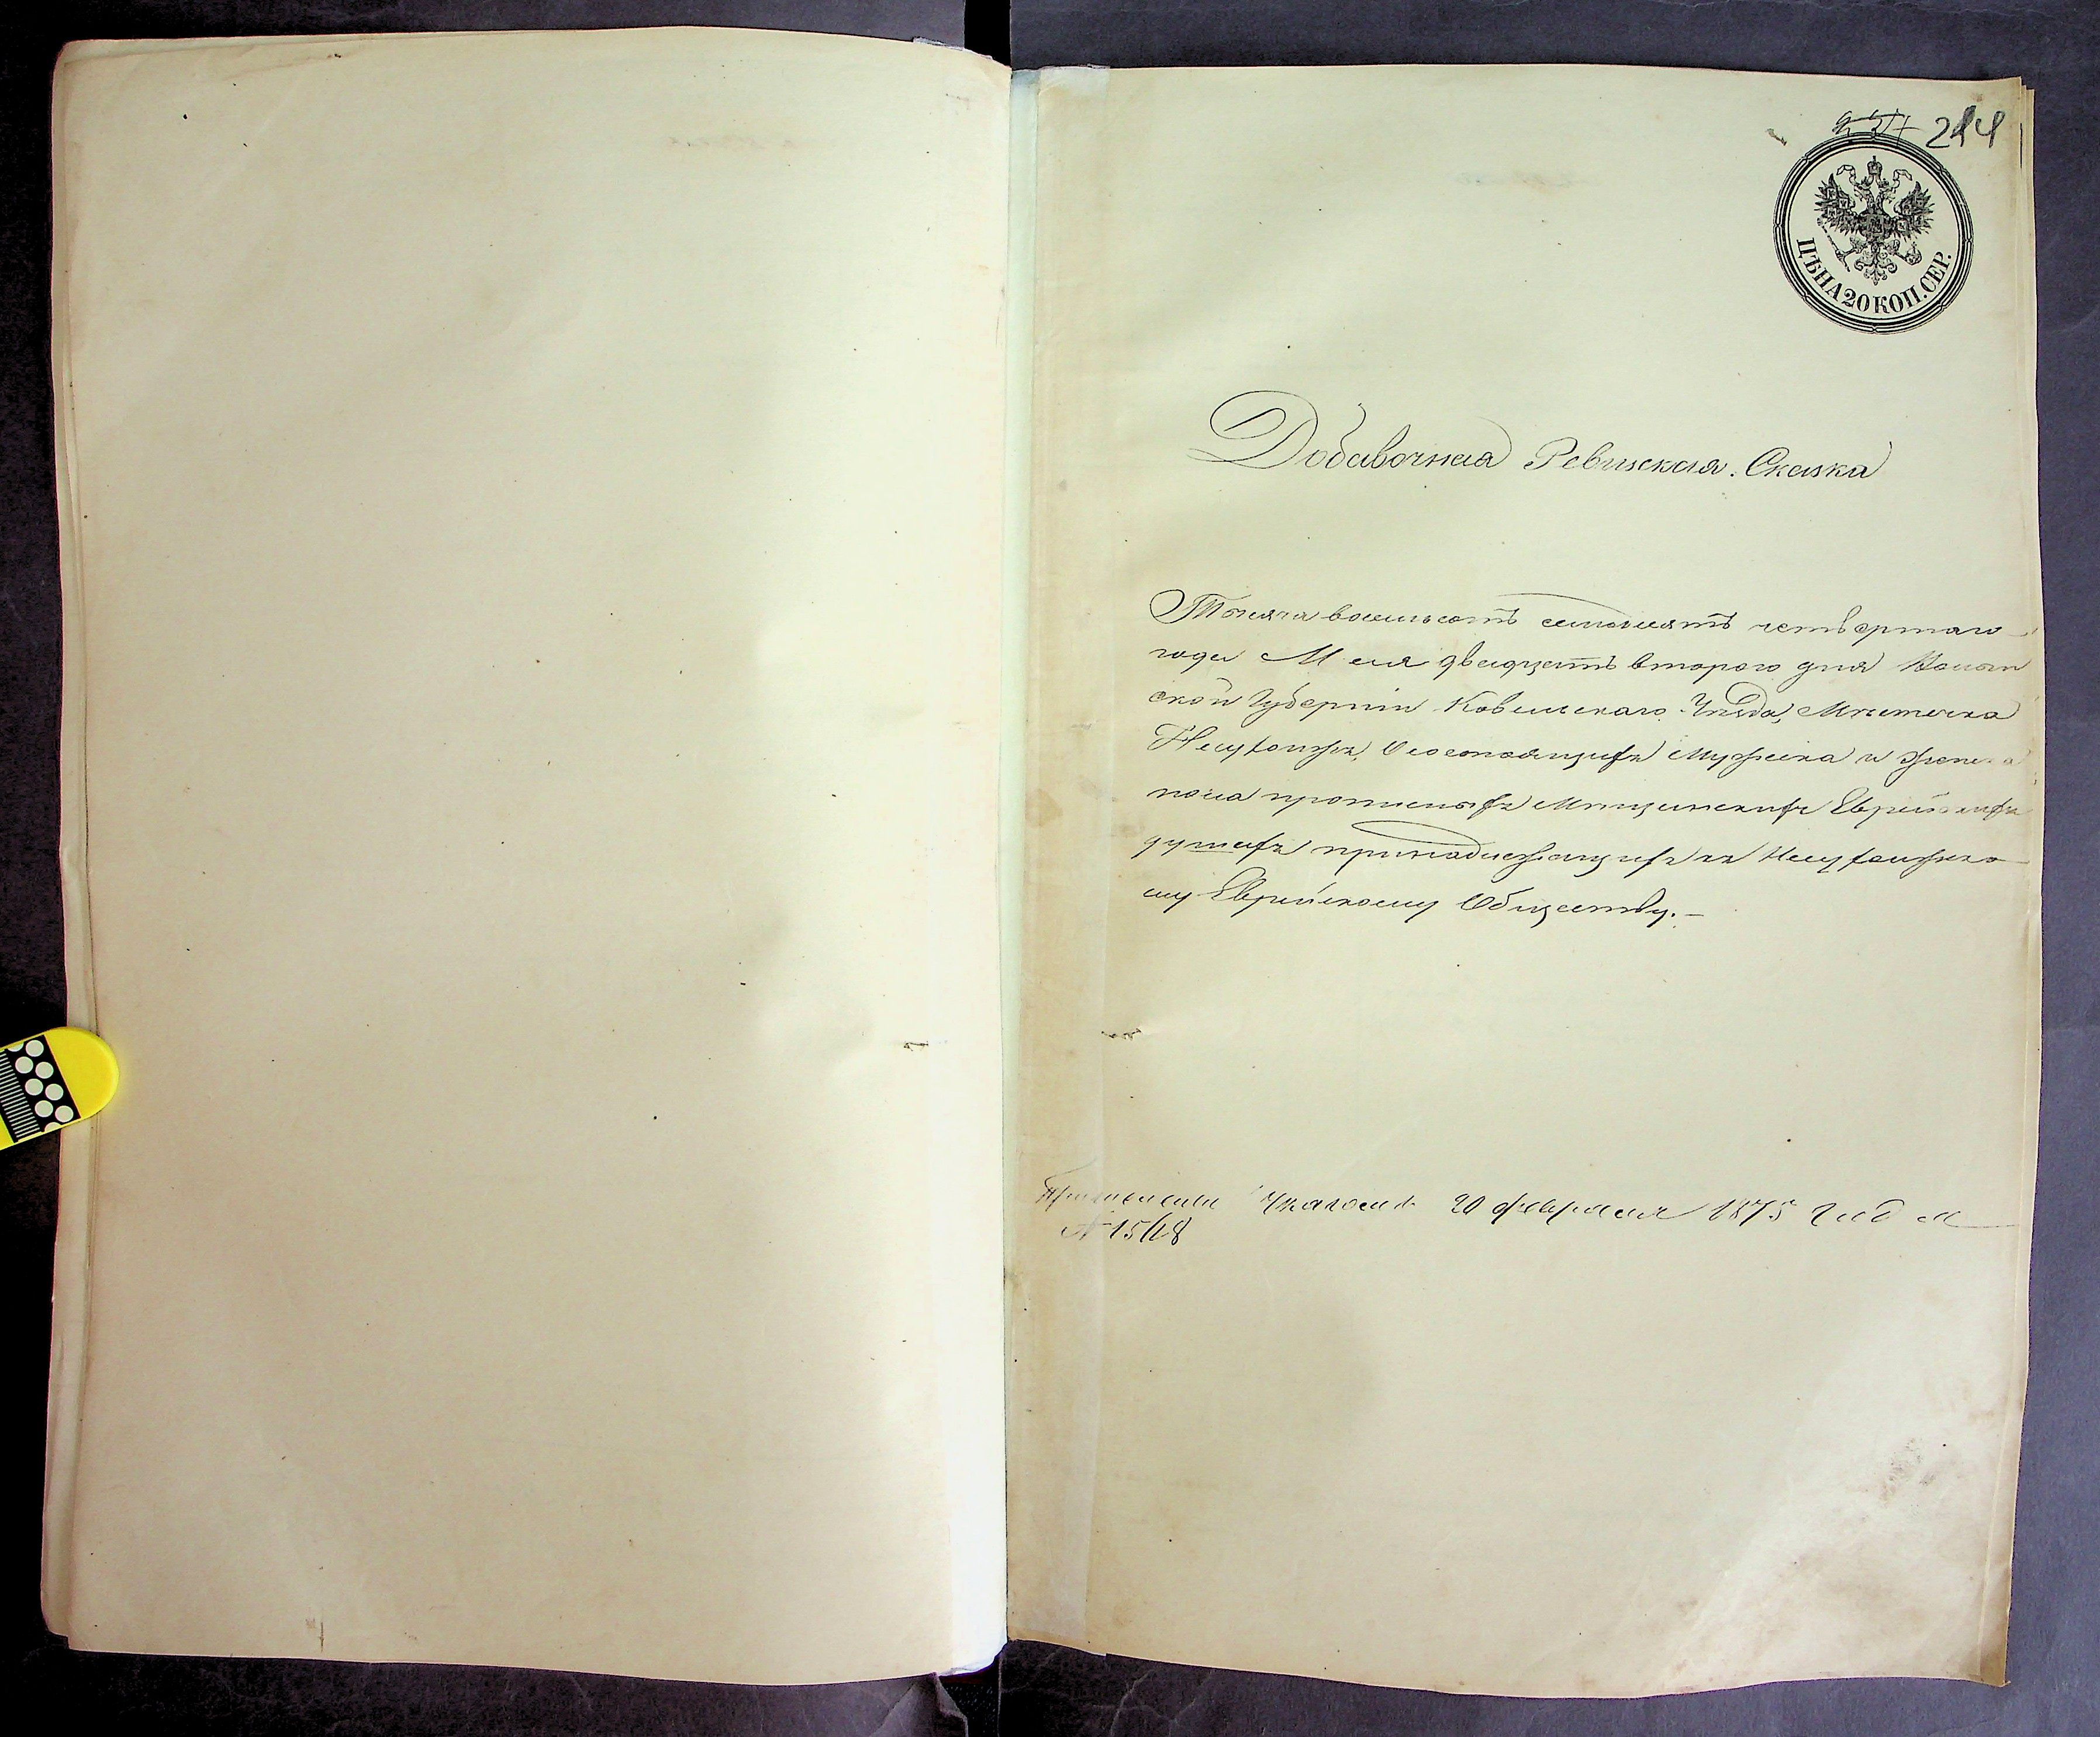 244
ЦѢНА 20 КОП. СЕР.
Добавочная Ревизская Сказка
Тысяча восемьсотъ семьдесятъ четвертаго
года Мая двадцать втораго дня Волын
ской Губерніи Ковельскаго Уѣзда, Мѣстечка
Несухоижъ, О состоящихъ мужеска и женска
пола прописныхъ Мѣщанскихъ Еврейскихъ
душахъ принадлежащихъ къ Несухоижско
му Еврейскому Обществу.-
Указомъ 20 февраля 1875 года
№